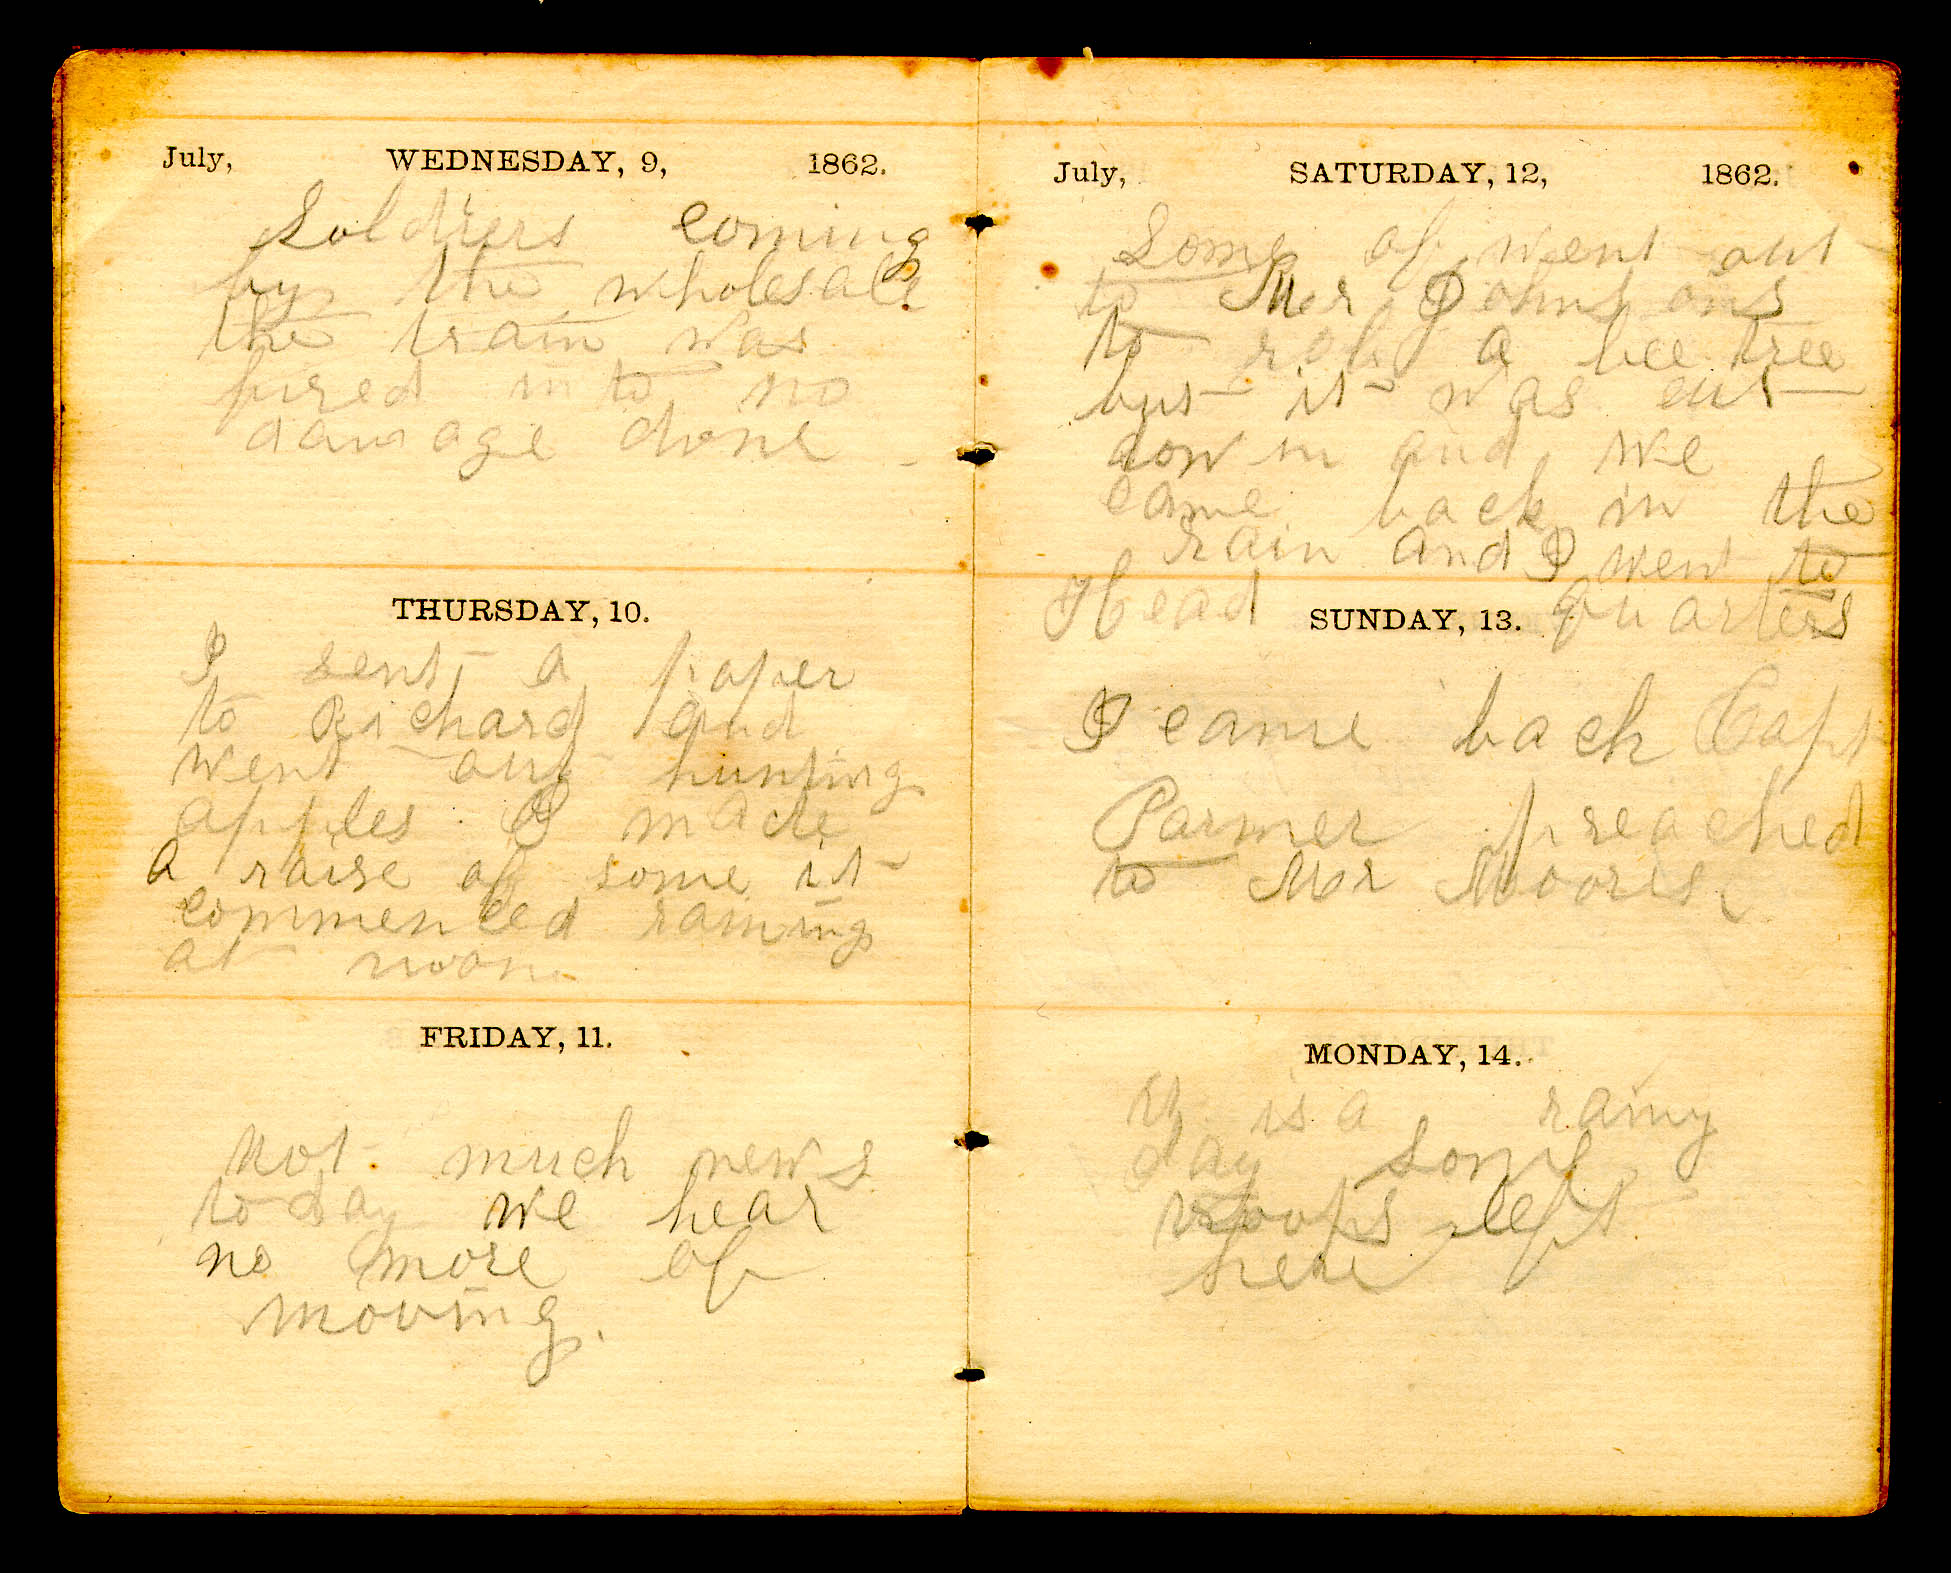 July, WEDNESDAY, 9, 1862.
Soldiers coming
by the wholesale
the train was
fired into no
damage done
THURSDAY, 10.
I sent a paper
to Richard and
went out hunting
apples I made
a raise of some it
commenced raining
at noon.
FRIDAY, 11.
Not much news
to day we hear
no more of
moving.
July, SATURDAY, 12, 1862.
Some of went out
to Mr Johnstons
to rob a bee tree
but it was cut
down and we
came back in the
rain and I went to
Head quarters
SUNDAY, 13.
I came back Capt
Parmer preached
to Mr Moores
MONDAY, 14.
It is a rainy
day Some
troops left
here